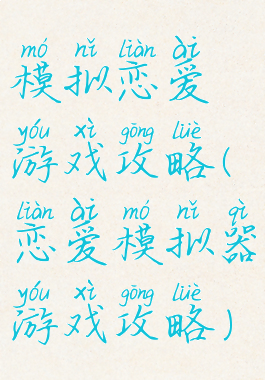 mó nǐ liàn ài
模拟恋爱
yóu xì gōng lüè
游戏攻略(
liàn ài mó nǐ qì
恋爱模拟器
yóu xì gōng lüè
游戏攻略)